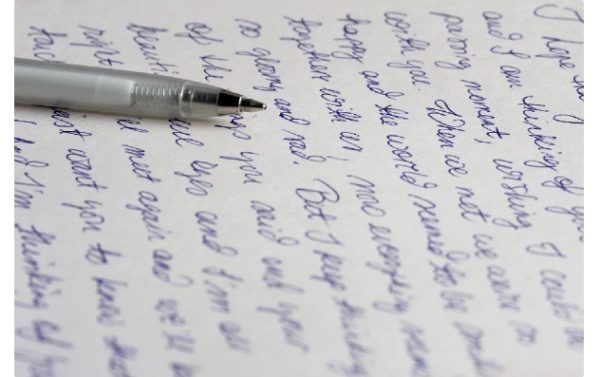 I hope
and I am thinking of you
passing moment, wishing I could be
with you. When we met we were so
happy and the world seemed to be
together with us, now everything
so gloomy and sad. But I keep thinking
of the you said and your
blue eyes and I'm
right meet again and we'll
just want you to know that
I'm thinking of